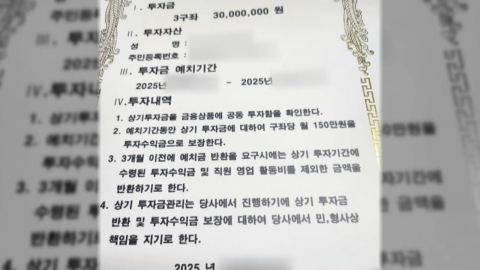 Ⅰ. 투자금
3구좌 30,000,000 원
Ⅱ. 투자자산
성 명 :
주민등록번호 :
Ⅲ. 투자금 예치기간
2025년 - 2025년
Ⅳ. 투자내역
1. 상기투자금을 금융상품에 공동 투자함을 확인한다.
2. 예치기간동안 상기 투자금에 대하여 구좌당 월 150만원을
투자수익금으로 보장한다.
3. 3개월 이전에 예치금 반환을 요구시에는 상기 투자기간에
수령된 투자수익금 및 직원 영업 활동비를 제외한 금액을
반환하기로 한다.
4. 상기 투자금관리는 당사에서 진행하기에 상기 투자금
반환 및 투자수익금 보장에 대하여 당사에서 민,형사상
책임을 지기로 한다.
2025 년